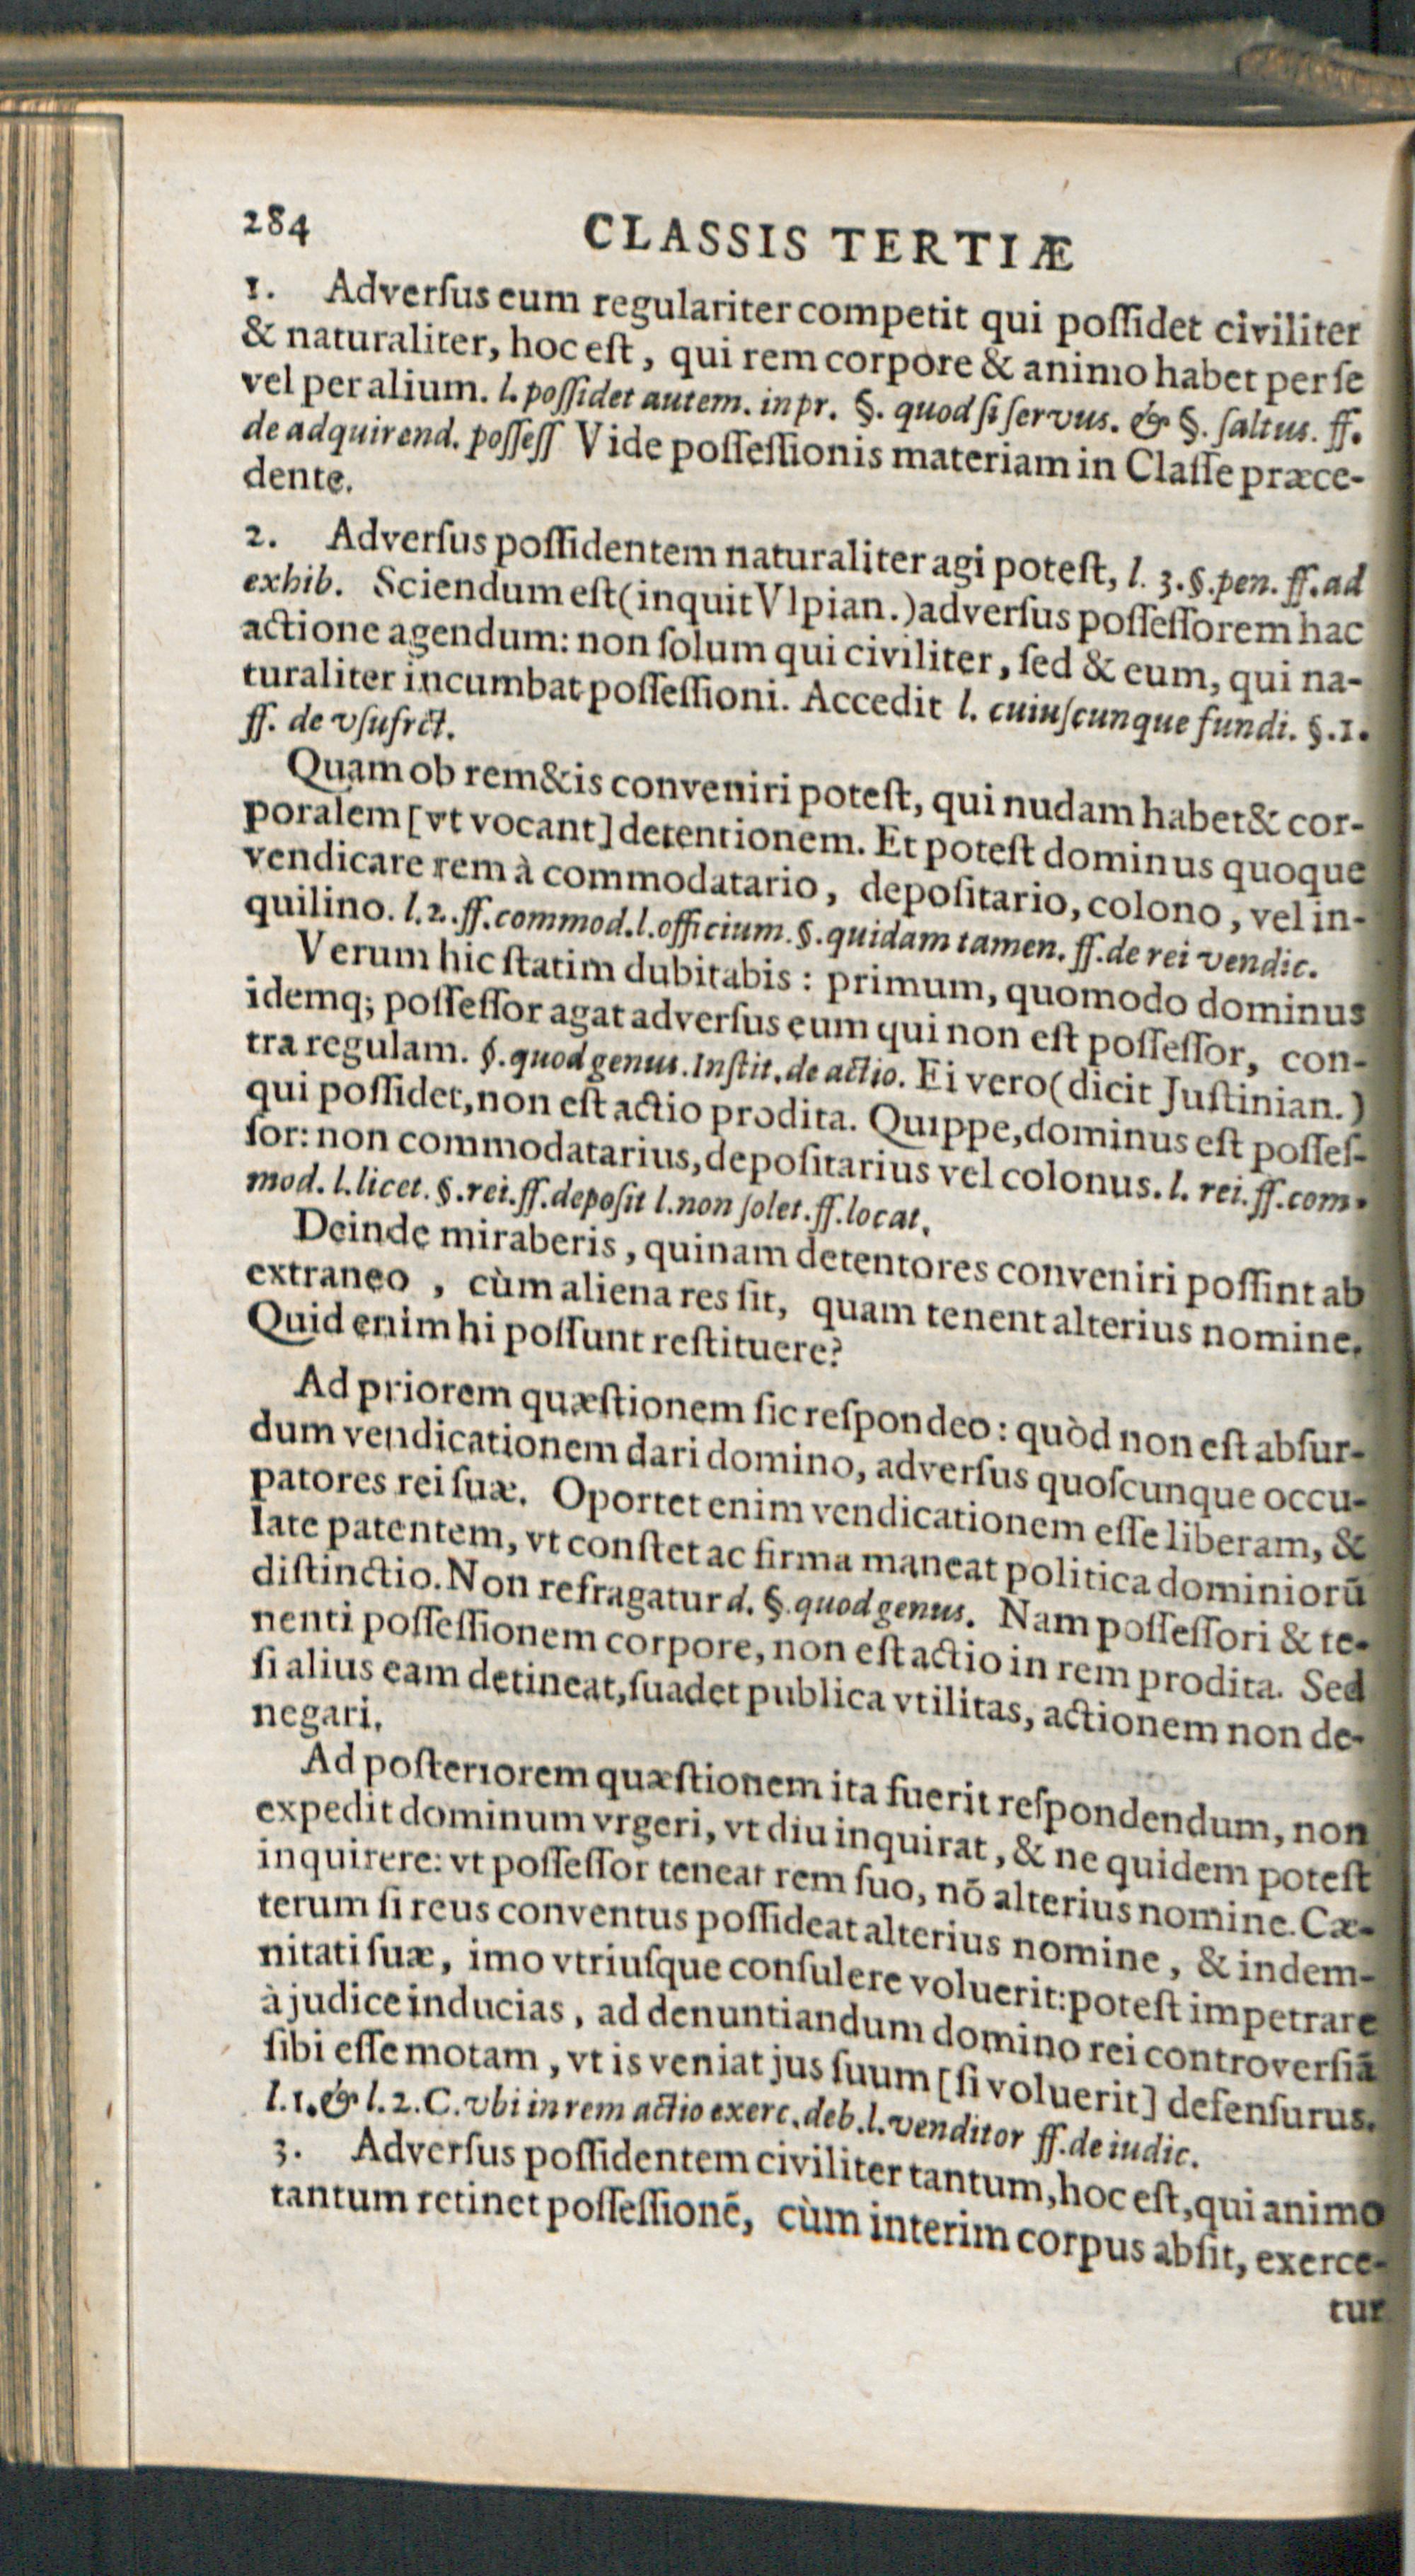 284 CLASSIS TERTIÆ
1. Adverſus eum regulariter competit qui poſſidet civiliter
& naturaliter, hoc eſt, qui rem corpore & animo habet per ſe
vel per alium. l. poſſidet autem. in pr. §. quod ſi ſervus. & §. ſaltus. ff.
de adquirend. poſſeſſ Vide poſſeſſionis materiam in Claſſe præce-
dente.
2. Adverſus poſſidentem naturaliter agi poteſt, l. 3. §. pen. ff. ad
exhib. Sciendum eſt (inquit Vlpian.) adverſus poſſeſſorem hac
actione agendum: non ſolum qui civiliter, ſed & eum, qui na-
turaliter incumbat poſſeſſioni. Accedit l. cuiuſcunque fundi. §. 1.
ff. de vſufrct.
Quam ob rem & is conveniri poteſt, qui nudam habet & cor-
poralem [vt vocant] detentionem. Et poteſt dominus quoque
vendicare rem à commodatario, depoſitario, colono, vel in-
quilino. l. 2. ff. commod. l. officium. §. quidam tamen. ff. de rei vendic.
Verum hic ſtatim dubitabis: primum, quomodo dominus
idemq; poſſeſſor agat adverſus eum qui non eſt poſſeſſor, con-
tra regulam. §. quod genus. Inſtit. de actio. Ei vero (dicit Juſtinian.)
qui poſſidet, non eſt actio prodita. Quippe, dominus eſt poſſeſ-
ſor: non commodatarius, depoſitarius vel colonus. l. rei. ff. com-
mod. l. licet. §. rei. ff. depoſit l. non ſolet. ff. locat.
Deinde miraberis, quinam detentores conveniri poſſint ab
extraneo, cùm aliena res ſit, quam tenent alterius nomine.
Quid enim hi poſſunt reſtituere?
Ad priorem quæſtionem ſic reſpondeo: quòd non eſt abſur-
dum vendicationem dari domino, adverſus quoſcunque occu-
patores rei ſuæ. Oportet enim vendicationem eſſe liberam, &
late patentem, vt conſtet ac firma maneat politica dominiorū
diſtinctio. Non refragatur d. §. quod genus. Nam poſſeſſori & te-
nenti poſſeſſionem corpore, non eſt actio in rem prodita. Sed
ſi alius eam detineat, ſuadet publica vtilitas, actionem non de-
negari.
Ad poſteriorem quæſtionem ita fuerit reſpondendum, non
expedit dominum vrgeri, vt diu inquirat, & ne quidem poteſt
inquirere: vt poſſeſſor teneat rem ſuo, nō alterius nomine. Cæ-
terum ſi reus conventus poſſideat alterius nomine, & indem-
nitati ſuæ, imo vtriuſque conſulere voluerit: poteſt impetrare
à judice inducias, ad denuntiandum domino rei controverſiā
ſibi eſſe motam, vt is veniat jus ſuum [ſi voluerit] defenſurus.
l. 1. & l. 2. C. vbi in rem actio exerc. deb. l. venditor ff. de iudic.
3. Adverſus poſſidentem civiliter tantum, hoc eſt, qui animo
tantum retinet poſſeſſionē, cùm interim corpus abſit, exerce-
tur